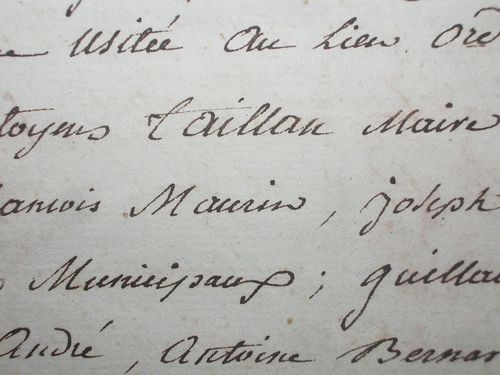 e Usitée au Lieu Ord
toyens Taillan Maire
ancois Maurin, joseph
s Municipaux; guillau
André, Antoine Bernar